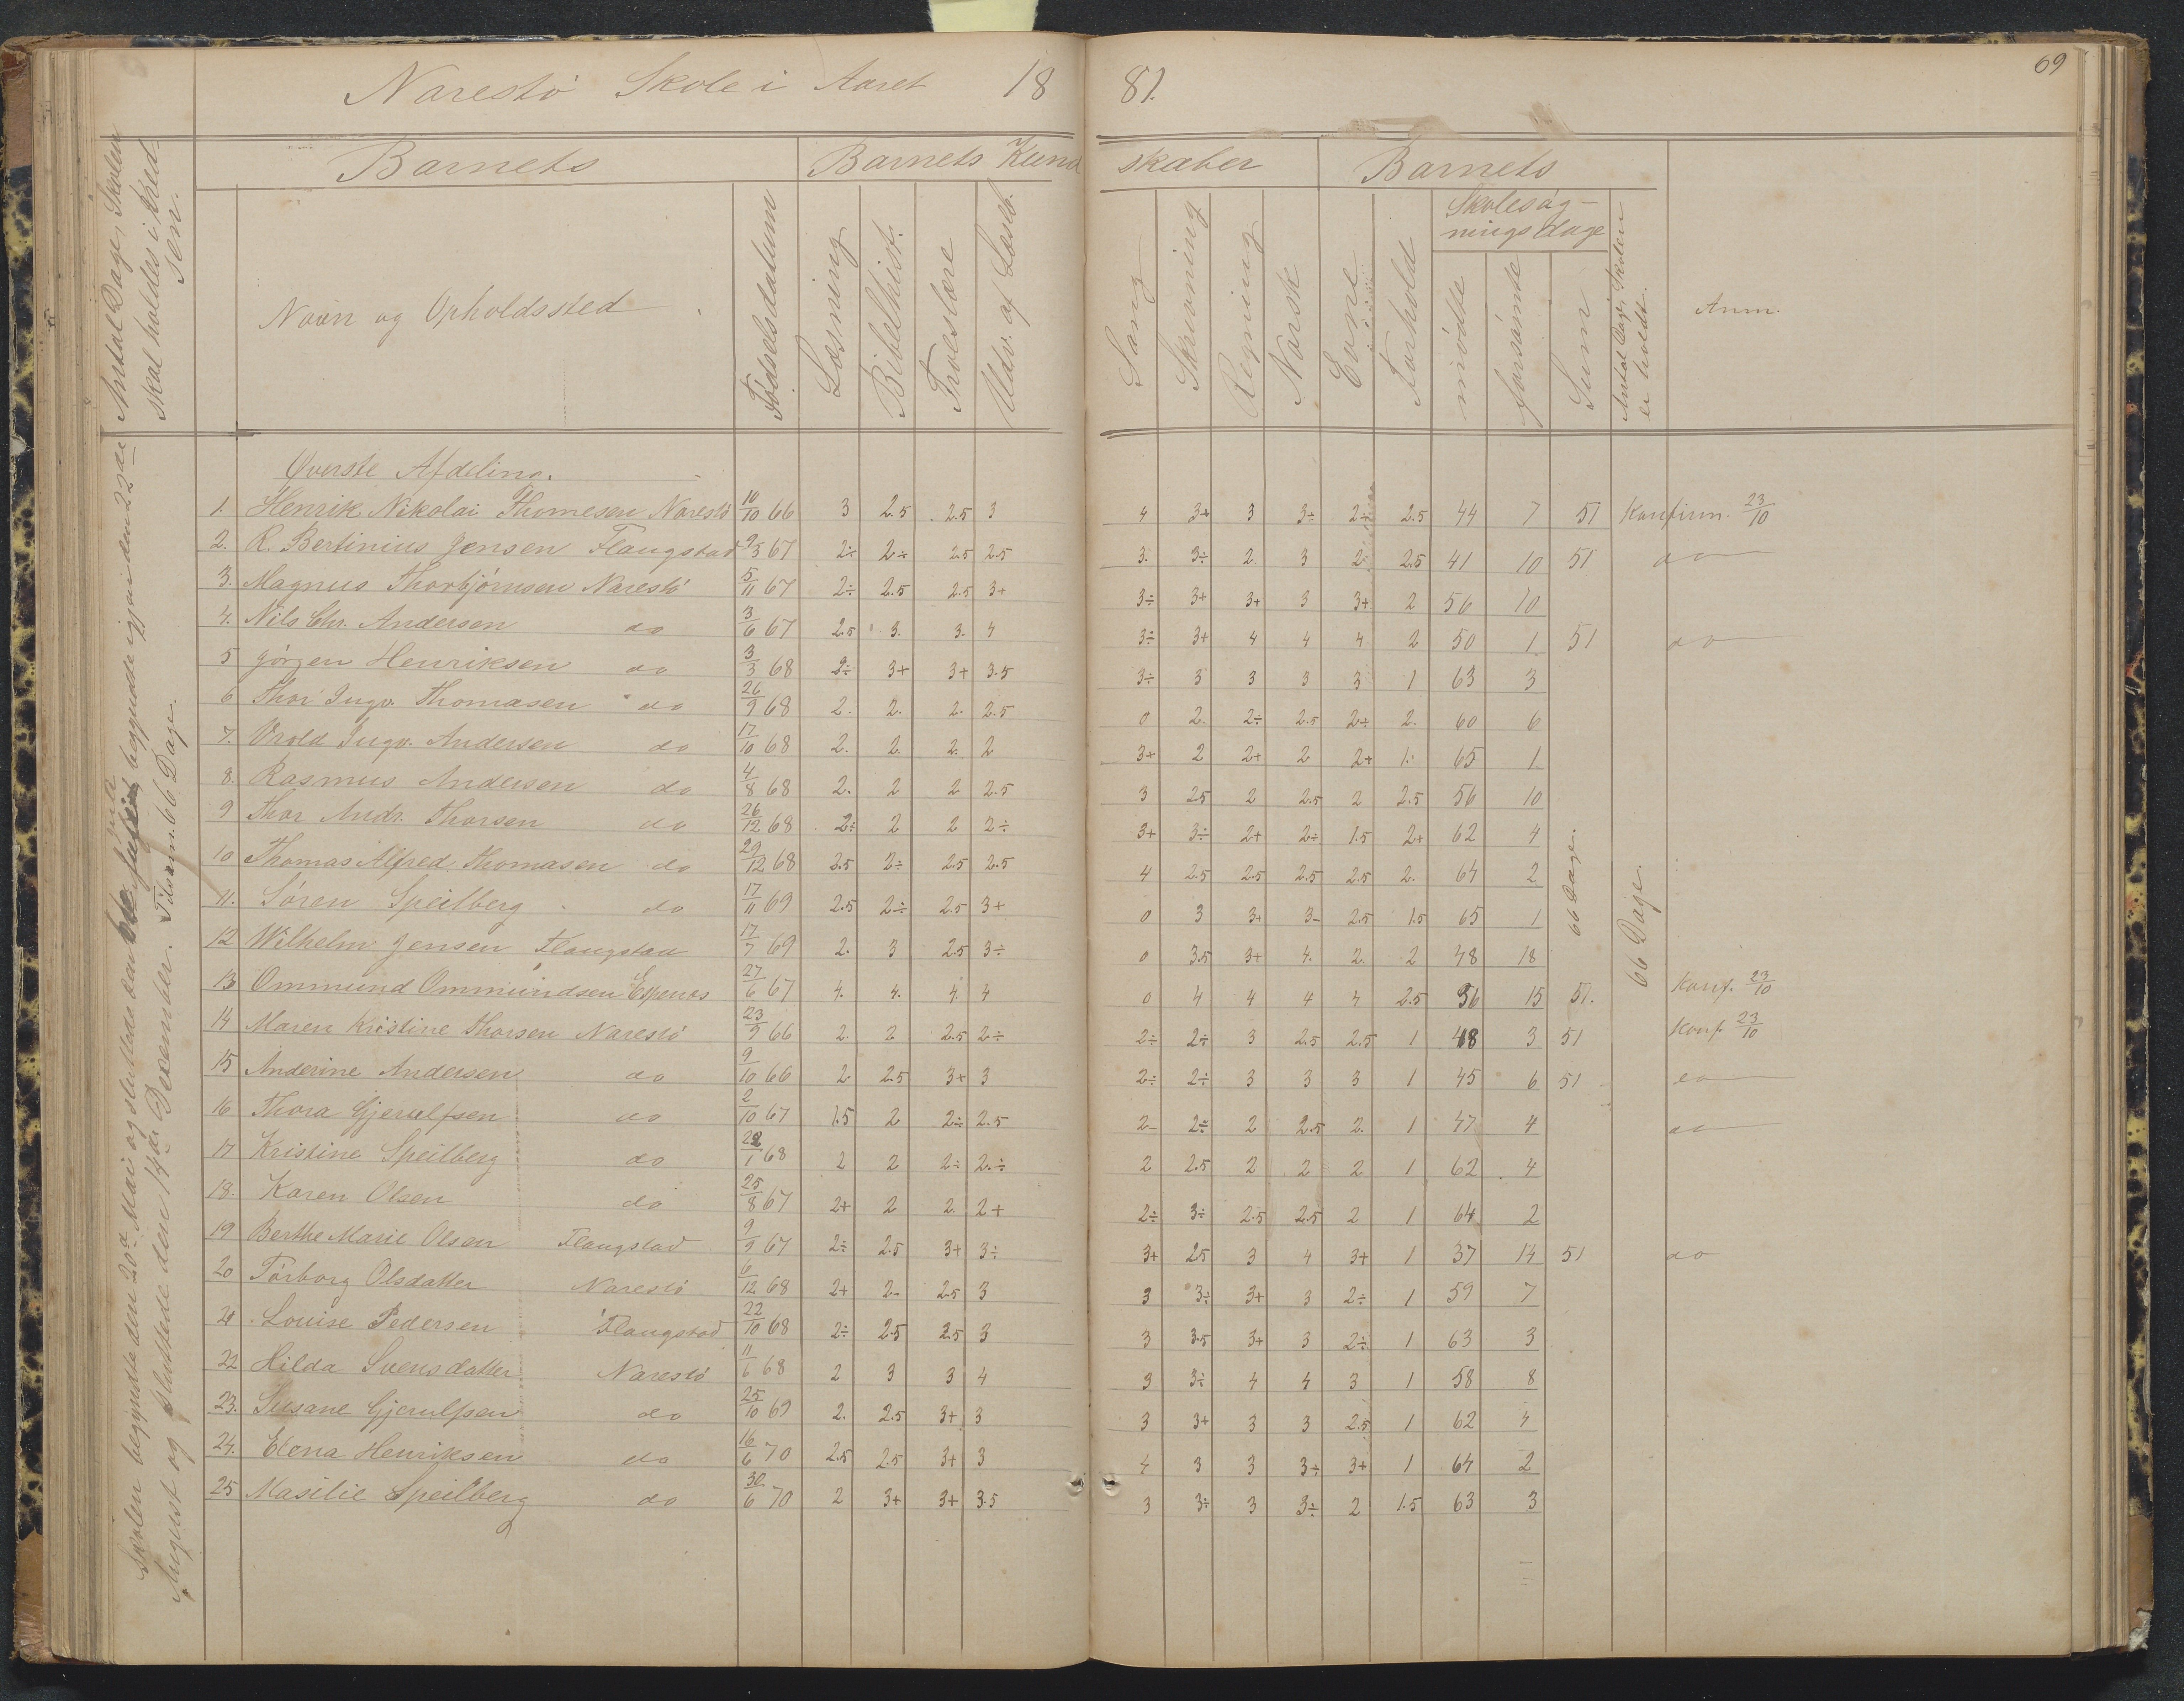 Narestø Skole i Aaret 1881.
69
Antal Dage, Skolen skal holdes i Kredsen.
Barnets
Barnets Kundskaber
Barnets
Navn og Opholdssted
Fødselsdatum
Læsning
Bibelhist.
Troeslære
Udv. af Læseb.
Sang
Skrivning
Regning
Norsk
Evne
Forhold
Skolesøgningsdage
mødte
forsømte
Sum
Antal Dage, Skolen er holdt.
Anm.
Øverste Afdeling.
1. Henrik Nikolai Thomesen Narestø 10/10 66 3 2.5 2.5 3 4 3+ 3 3÷ 2÷ 2.5 44 7 51 Konfirm. 23/10
2. R. Bertinius Jensen Flangstad 9/3 67 2÷ 2÷ 2.5 2.5 3. 3÷ 2. 3 2. 2.5 41 10 51 do
3. Magnus Thorbjørnsen Narestø 5/11 67 2÷ 2.5 2.5 3+ 3÷ 3+ 3+ 3 3+ 2 56 10
4. Nils Chr. Andersen do 3/6 67 2.5 3. 3. 4 3÷ 3+ 4 4 4 2 50 1 51 do
5 Jørgen Henriksen do 3/3 68 2÷ 3+ 3+ 3.5 3÷ 3 3 3 3 1 63 3
6 Thor Ingv. Thomasen do 26/9 68 2. 2. 2. 2.5 0 2. 2÷ 2.5 2÷ 2. 60 6
7. Arold Ingv. Andersen do 17/10 68 2. 2. 2. 2 3+ 2 2+ 2 2+ 1. 65 1
8. Rasmus Andersen do 4/8 68 2. 2 2 2.5 3 2.5 2 2.5 2 2.5 56 10
9 Thor Andr. Thorsen do 26/12 68 2÷ 2 2 2÷ 3+ 3÷ 2+ 2÷ 1.5 2+ 62 4
10 Thomas Alfred Thomasen do 29/12 68 2.5 2÷ 2.5 2.5 4 2.5 2.5 2.5 2.5 2. 64 2
11. Søren Speilberg do 17/11 69 2.5 2÷ 2.5 3+ 0 3 3+ 3- 2.5 1.5 65 1
12 Wilhelm Jensen Flangstad 17/7 69 2. 3 2.5 3÷ 0 3.5 3+ 4. 2. 2 48 18
13 Ommund Ommundsen Espenes 27/6 67 4. 4. 4. 4 0 4 4 4 4 2.5 36 15 51. Konf. 23/10
14 Maren Kristine Thorsen Narestø 23/9 66 2. 2 2.5 2÷ 2÷ 2÷ 3 2.5 2.5 1 48 3 51 Konf 23/10
15 Anderine Andersen do 9/10 66 2. 2.5 3+ 3 2÷ 2÷ 3 3 3 1 45 6 51 do
16 Thora Gjerulfsen do 2/10 67 1.5 2 2÷ 2.5 2- 2÷ 2 2.5 2. 1 47 4 do
17 Kristine Speilberg do 28/1 68 2 2 2÷ 2.÷ 2 2.5 2 2 2 1 62 4
18. Karen Olsen do 25/8 67 2+ 2 2. 2+ 2÷ 3÷ 2.5 2.5 2 1 64 2
19 Berthe Marie Olsen Flangstad 9/9 67 2÷ 2.5 3+ 3÷ 3+ 2.5 3 4 3+ 1 37 14 51 do
20 Torborg Olsdatter Narestø 6/12 68 2+ 2- 2.5 3 3 3÷ 3+ 3 2÷ 1 59 7
21 Louise Pedersen Flangstad 22/10 68 2÷ 2.5 2.5 3 3 3.5 3+ 3 2÷ 1 63 3
22 Hilda Svensdatter Narestø 11/6 68 2 3 3 4 3 3÷ 4 4 3 1 58 8
23. Susane Gjerulfsen do 25/10 69 2. 2.5 3+ 3 3 3+ 3 3 2.5 1 62 4
24. Elena Henriksen do 16/6 70 2.5 2.5 3+ 3 4 3 3 3÷ 3+ 1 64 2
25 Masilie Speilberg do 30/6 70 2 3+ 3+ 3.5 3 3÷ 3 3÷ 2 1.5 63 3
66 Dage.
66 Dage.
Skolen begyndte den 20de Mai og sluttede den Juli begyndte igjen den 22de
August og sluttede den 14de Dexember. Tilsam. 66 Dage.